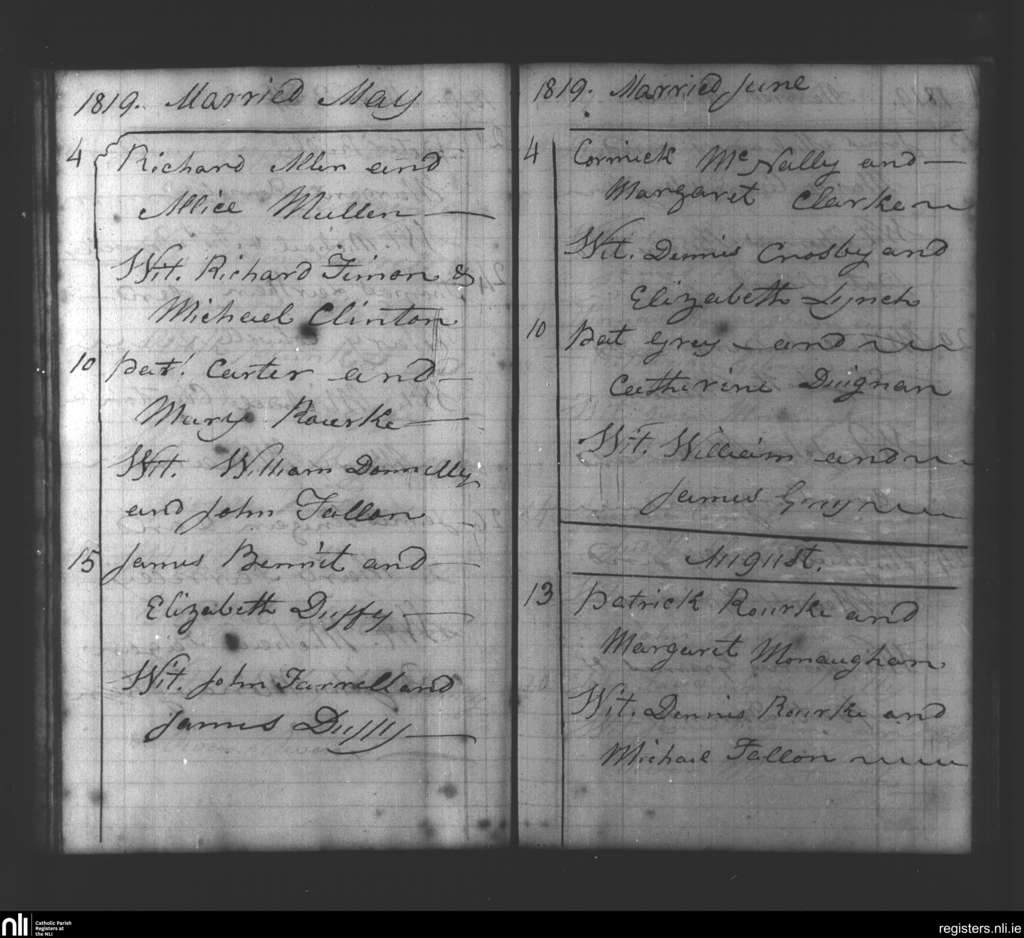 1819. Married May
4 Richard Allen and
Allice Mullen
Wit. Richard Timon &
Michael Clinton
10 Pat. Carter and
Mary Rourke
Wit. William Donnelly
and John Fallon
15 James Bennit and
Elizabeth Duffy
Wit. John Farrell and
James Duffy
1819. Married June
4 Cormick McNally and
Margaret Clarke
Wit. Dennis Crosby and
Elizabeth Lynch
10 Pat Grey and
Catherine Duignan
Wit. William and
James Grey
August.
13 Patrick Rourke and
Margaret Monaughan
Wit. Dennis Rourke and
Michael Fallon
nli
Catholic Parish
Registers at
the NLI
registers.nli.ie